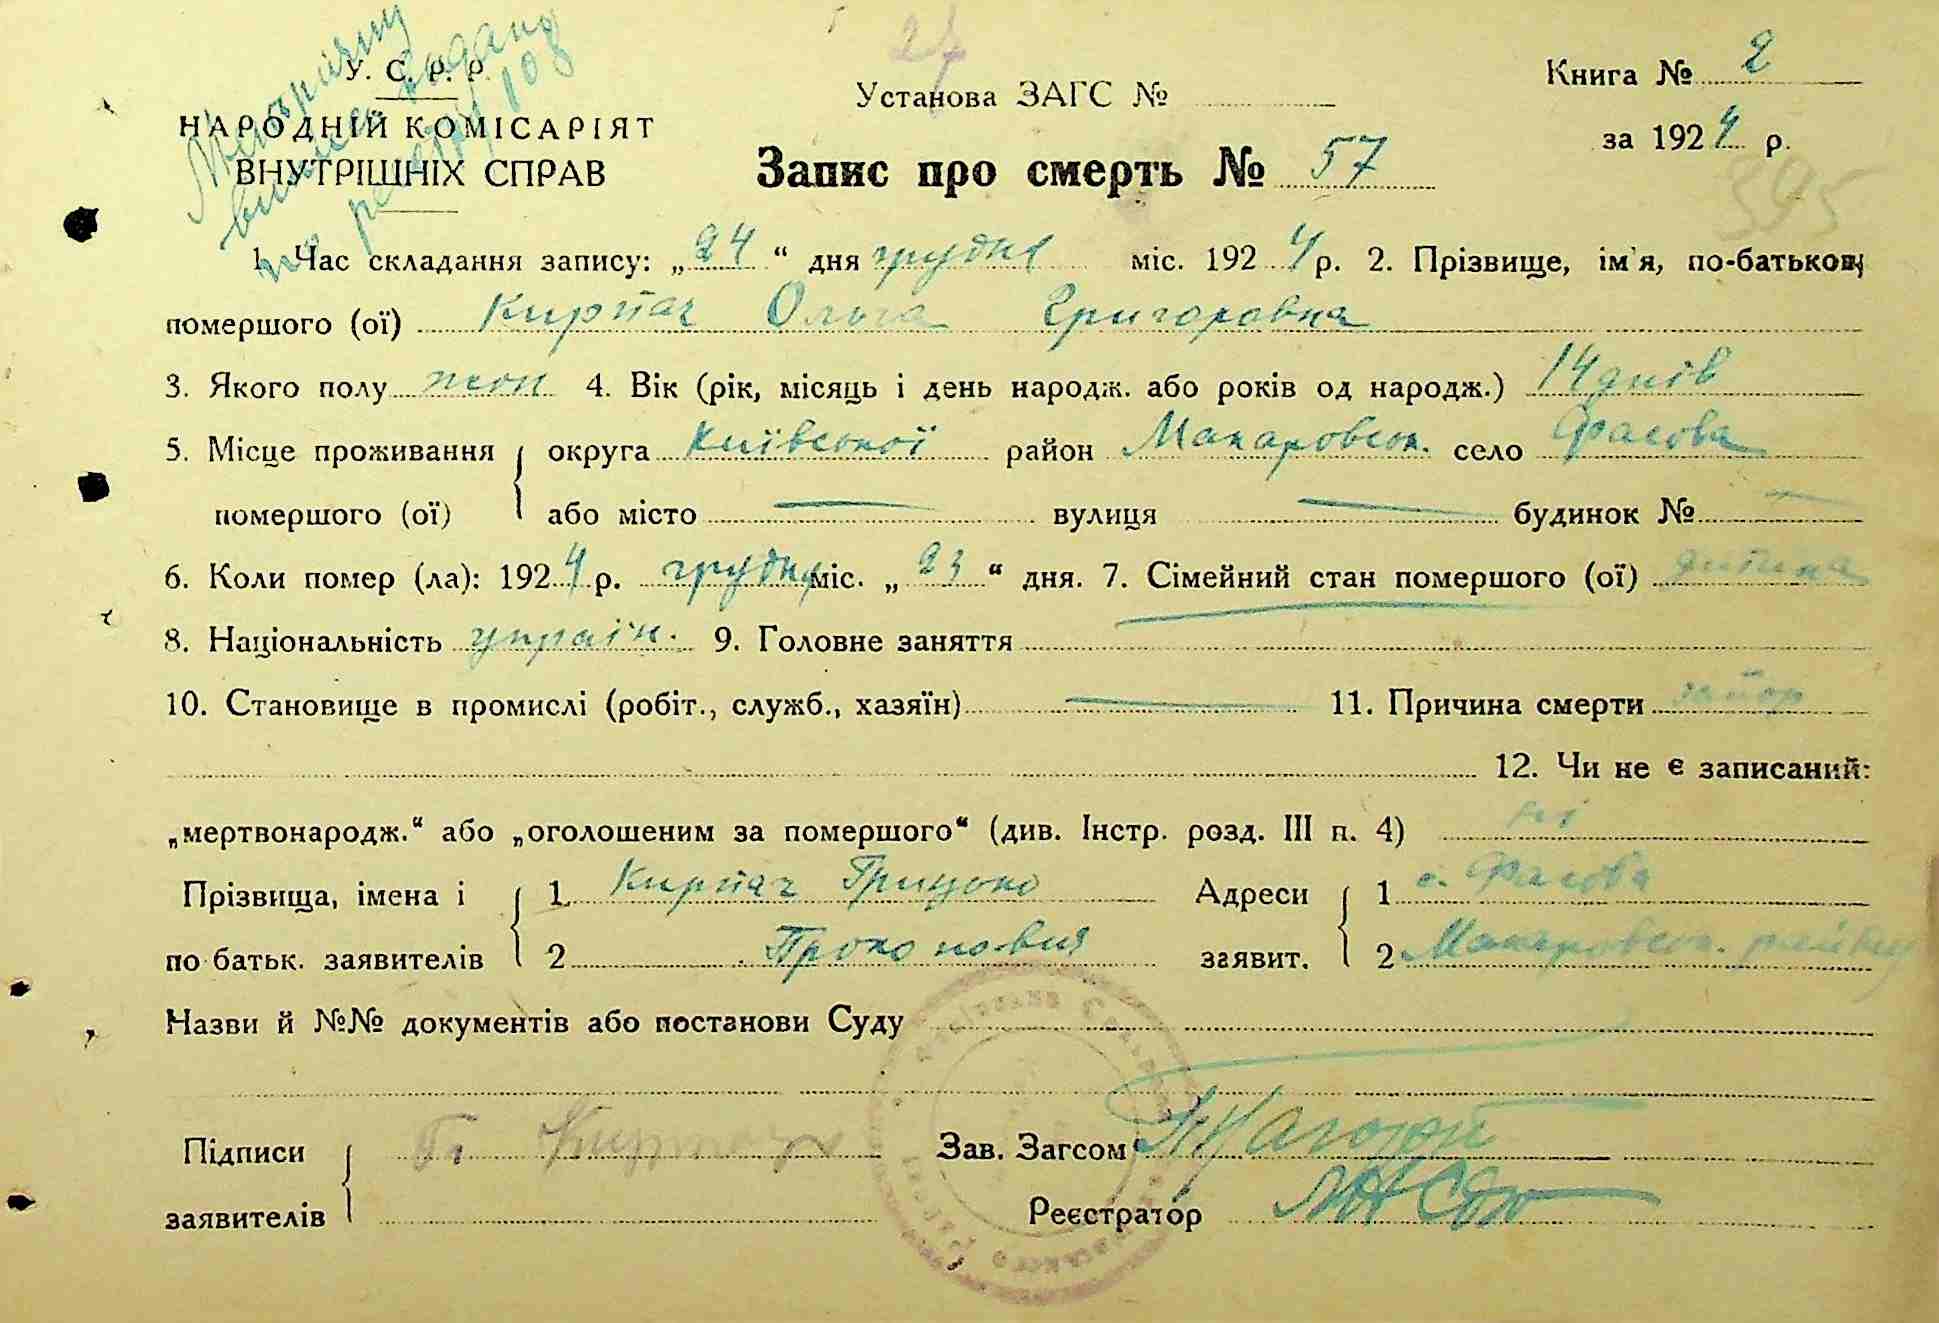 Метричну
виписку видано
по реєстру 108
У. С. Р. Р.
НАРОДНІЙ КОМІСАРІЯТ
ВНУТРІШНІХ СПРАВ
27
Установа ЗАГС №
Запис про смерть № 57
Книга № 2
за 1924 р.
395
1. Час складання запису: „24“ дня грудня міс. 1924 р. 2. Прізвище, ім'я, по-батькові
помершого (ої) Кирпач Ольга Григоровна
3. Якого полу жон 4. Вік (рік, місяць і день народж. або років од народж.) 14 днів
5. Місце проживання округа Київської район Макаровськ. село Фасова
помершого (ої) або місто — вулиця — будинок № —
6. Коли помер (ла): 1924 р. грудня міс. „23“ дня. 7. Сімейний стан помершого (ої) дитина
8. Національність україн. 9. Головне заняття —
10. Становище в промислі (робіт., служб., хазяїн) — 11. Причина смерти запор
12. Чи не є записаний:
„мертвонародж.“ або „оголошеним за помершого“ (див. Інстр. розд. III п. 4) ні
Прізвища, імена і 1. Кирпач Грицько Адреси 1 с. Фасова
по батьк. заявителів 2 Прокопович заявит. 2 Макаровськ. району
Назви й №№ документів або постанови Суду
Підписи Гр Кирпач Зав. Загсом
заявителів Реєстратор